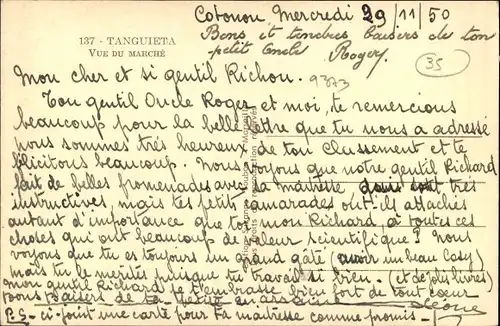 Cotonou Mercredi 29/11/50
137 - TANGUIETA
VUE DU MARCHÉ
Bons et tendres baisers de ton
petit oncle
Roger
35
9373
Mon cher et si gentil Richou.
Ton gentil Oncle Roger et moi, te remercions
beaucoup pour la belle lettre que tu nous a adressé
nous sommes très heureux de ton classement et te
félicitons beaucoup. Nous voyons que notre gentil Richard
fait de belles promenades avec la maîtresse dans sont très
instructives, mais tes petits camarades ont-ils attachés
autant d'importance que toi mon Richard à toutes ces
choses qui ont beaucoup de valeur scientifique? Nous
voyons que tu es toujours un grand gâté (avoir un beau Cosy)
mais tu le mérites puisque tu travail si bien. (et de plus livres)
mon gentil Richard je t'embrasse bien fort de tout coeur
bons baisers de ta
PS - ci-joint une carte pour ta maîtresse comme promis -